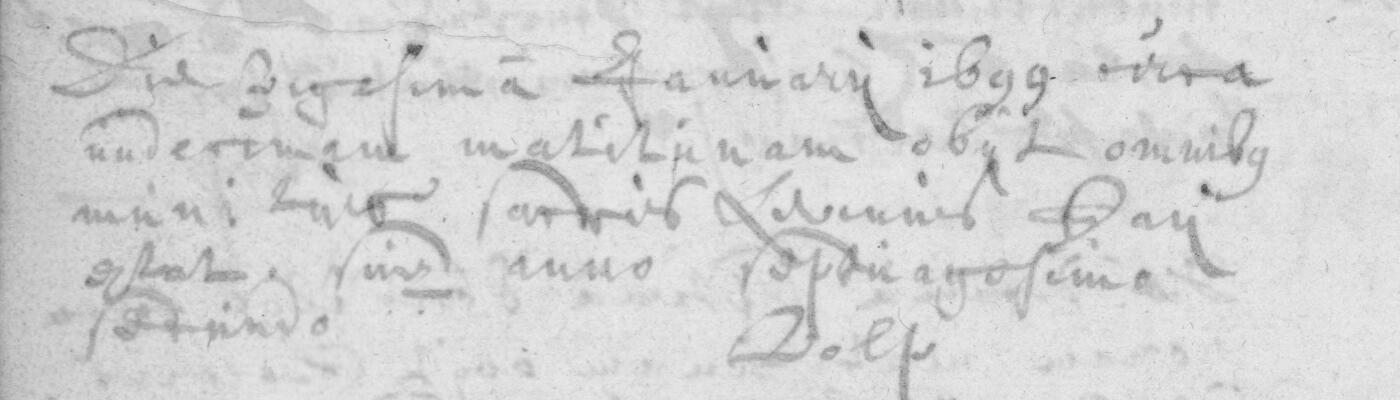 Die Vigesimâ Januarij 1699 circa
undecimam matutinam obijt omnibg
munitus sacris Livinus
ætat. suæ anno septuagesimo
secundo